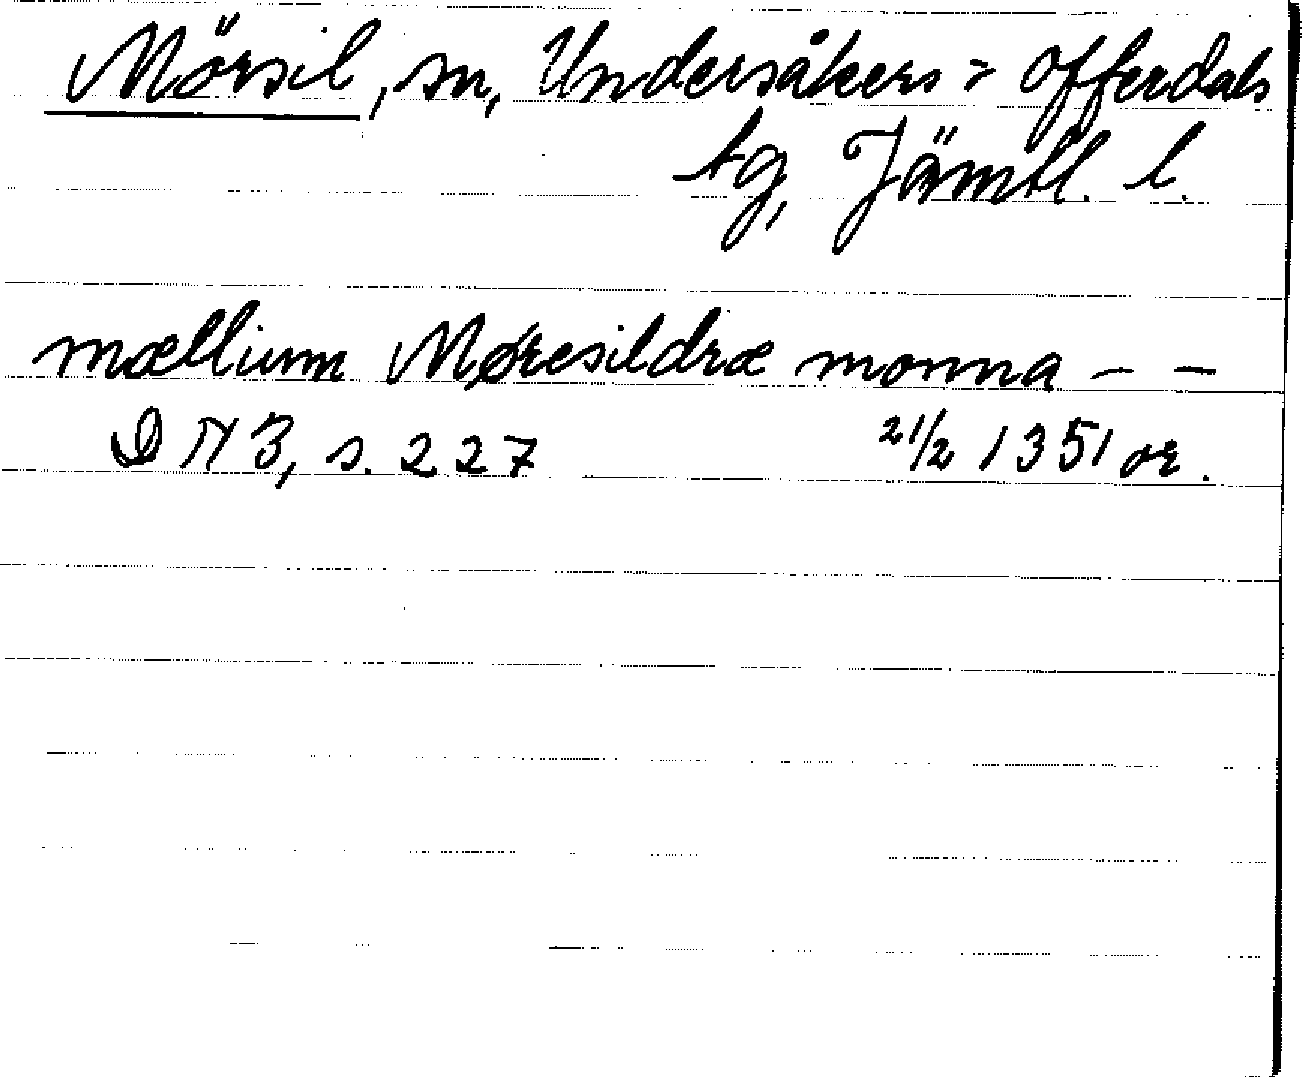 Mörsil, sn, Undersåkers o Offerdals
tg, Jämtl. l.
mællium Møresildræ monna – –
DN 3, s. 227 21/2 1351 or.